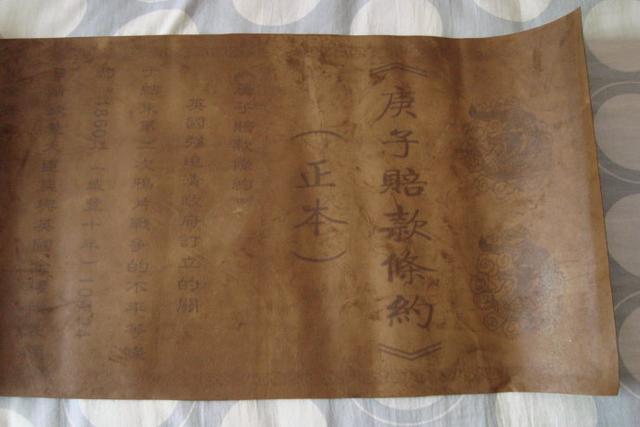 《庚子賠款條約》
（正本）
《庚子賠款條約》
英國強迫清政府訂立的關
于結束第二次鴉片戰爭的不平等條
約。1860年（咸豐十年）10月24
日 大臣 與英國全